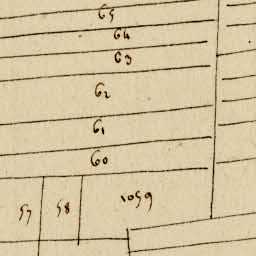 65
64
63
62
61
60
57 58 1059